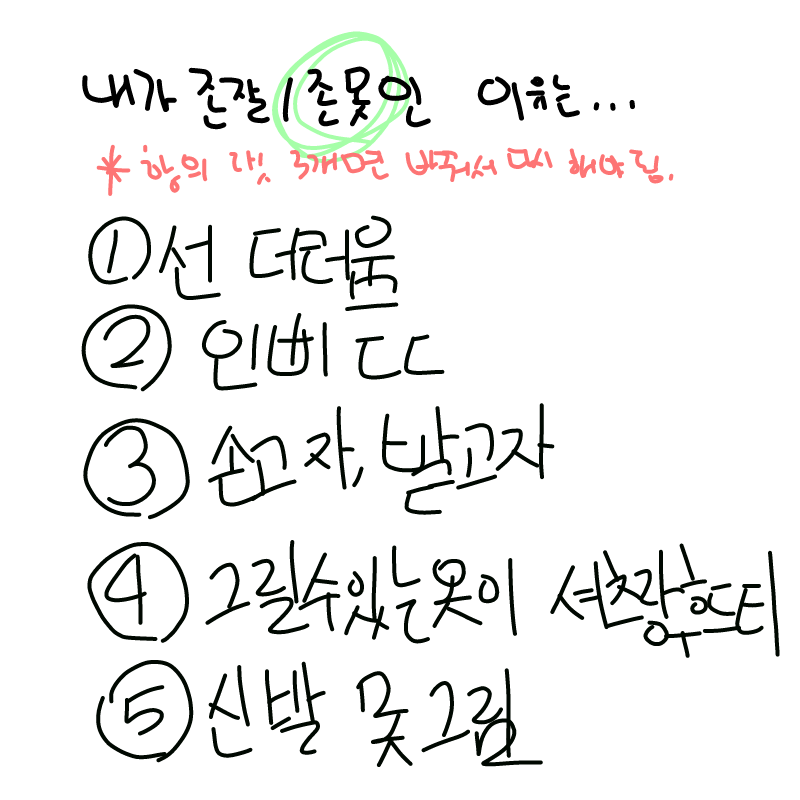 내가 존잘/존못인 이유는...
* 항의 댓 3개면 바꿔서 다시 해야됨.
① 선 더러움
② 인삐 ㄷㄷ
③ 손고자, 발고자
④ 그릴수있는옷이 셔츠랑후드티
⑤ 신발 못그림